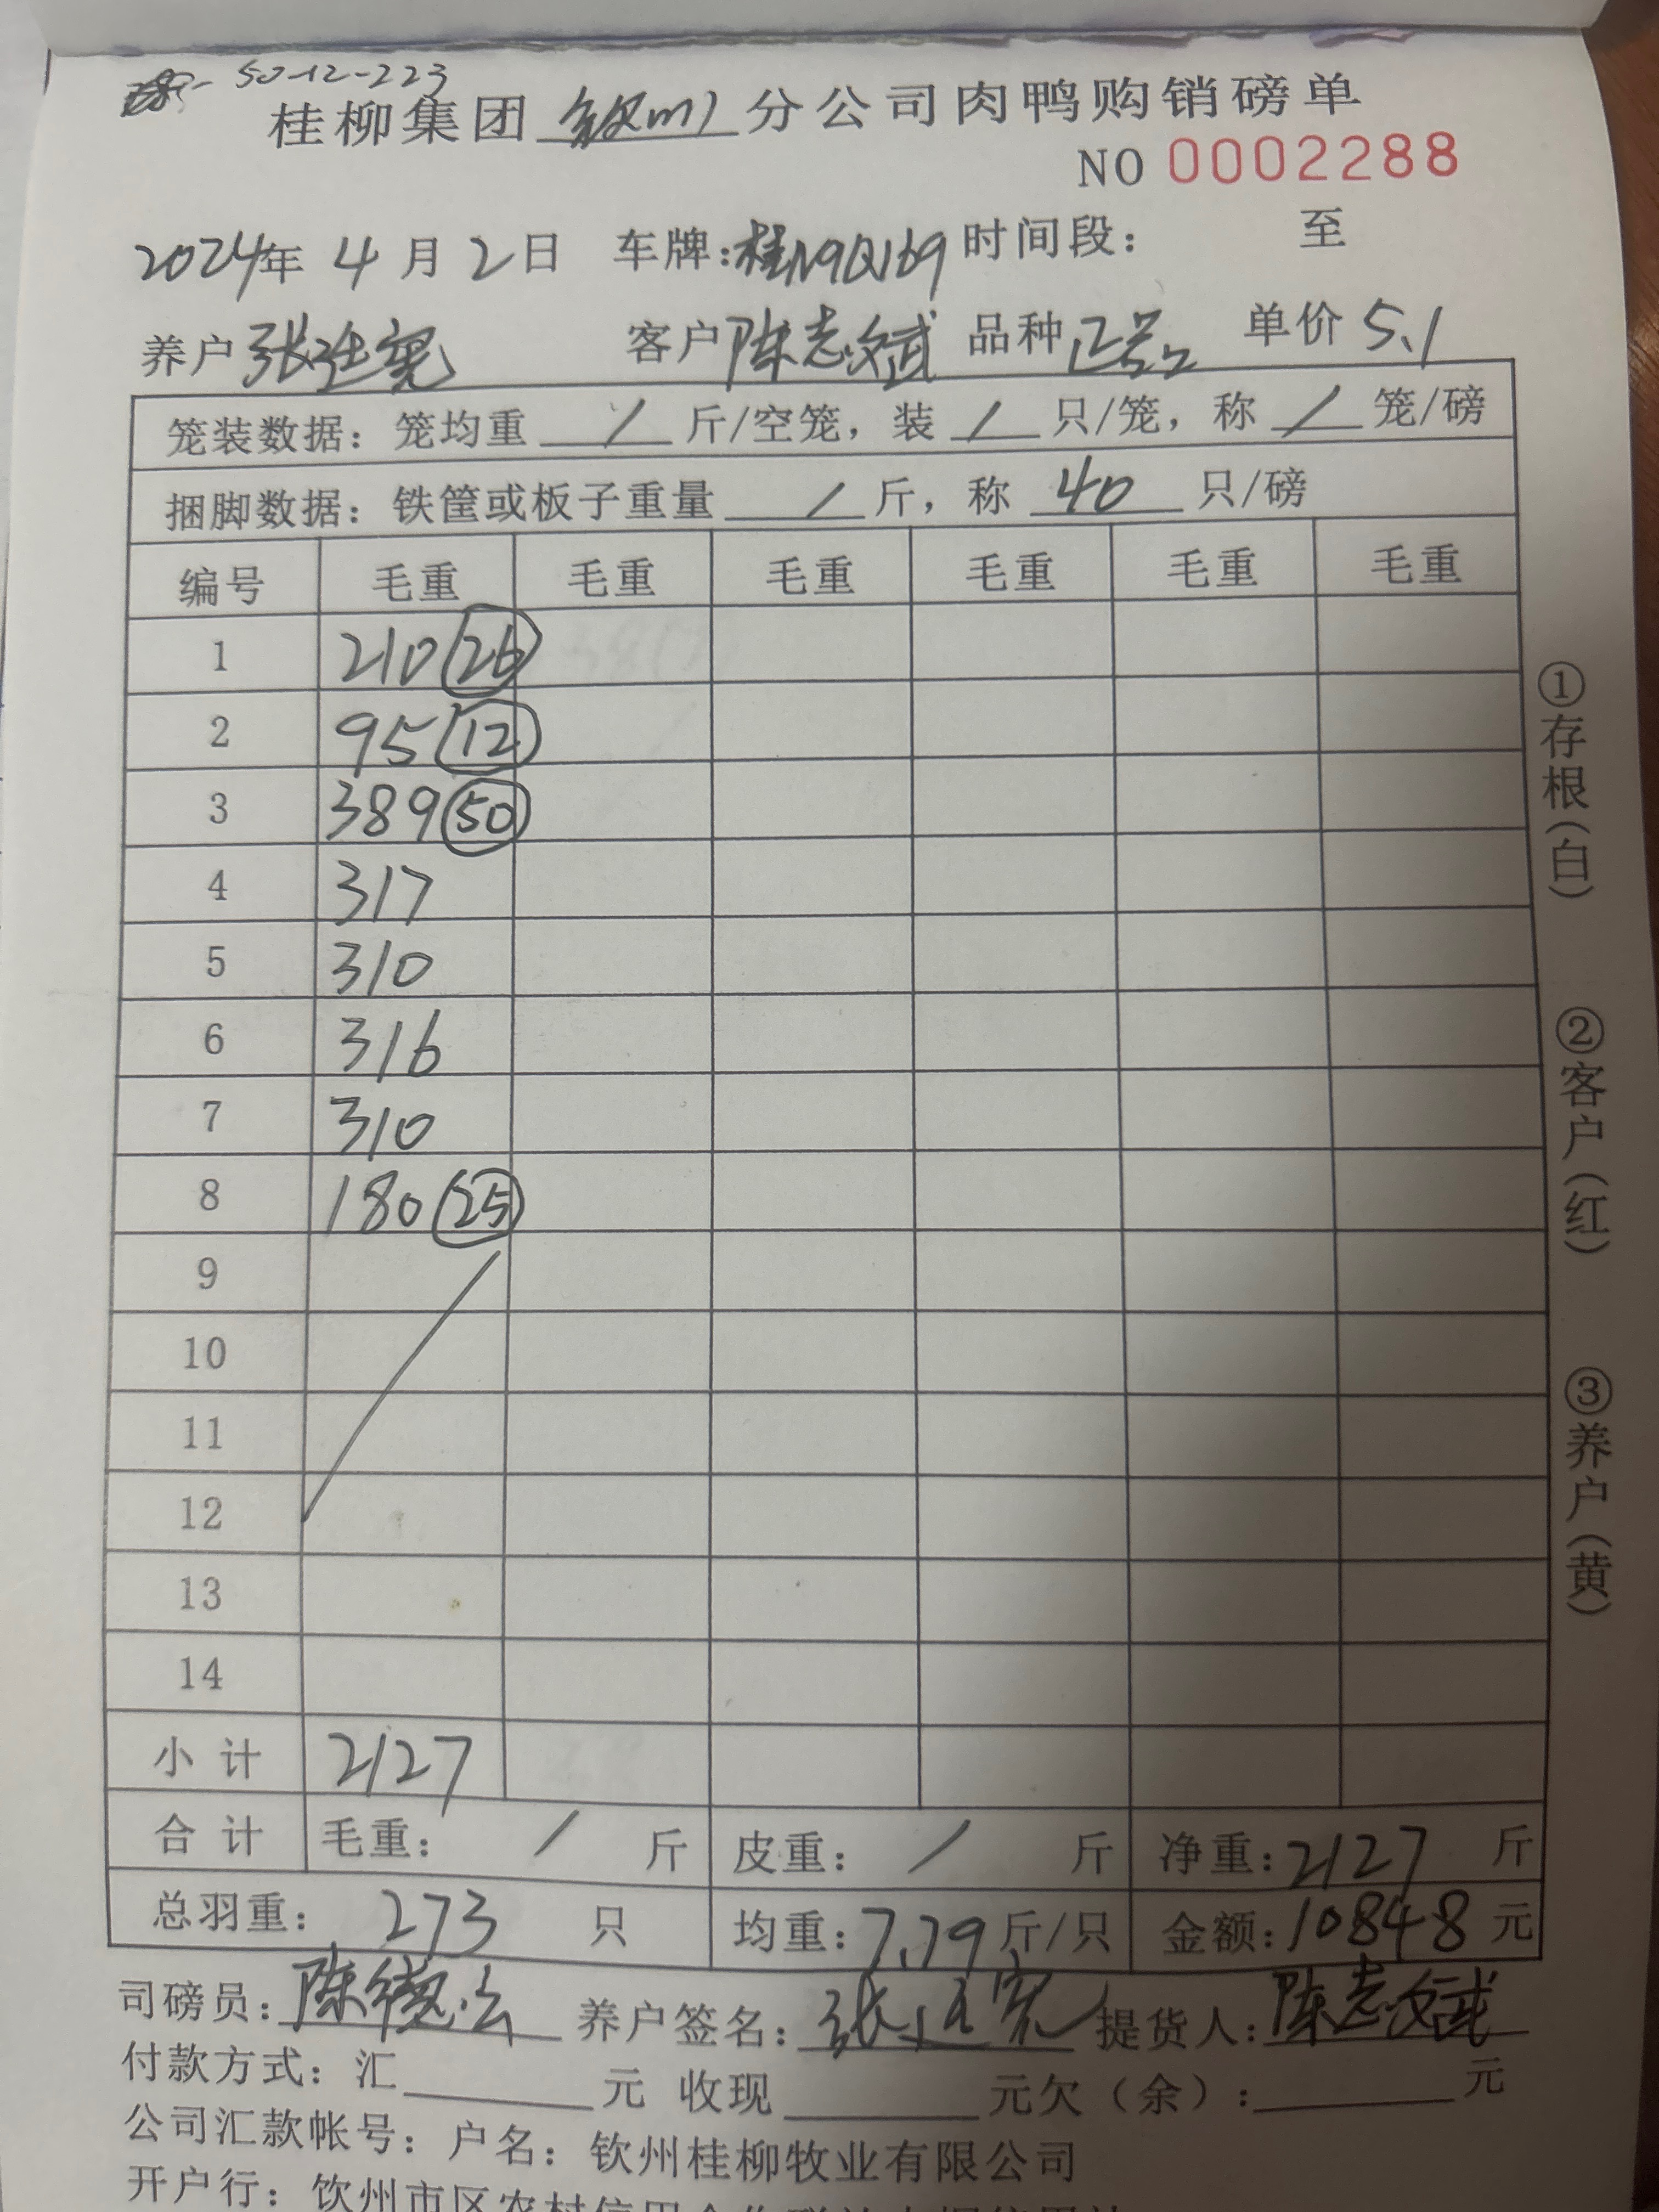 50-12-223
桂柳集团钦州分公司肉鸭购销磅单
NO 0002288
2024年 4 月 2 日 车牌:桂N9Q169 时间段: 至
养户 张 宽 客户 陈志斌 品种 正品 单价 5.1
笼装数据: 笼均重 / 斤/空笼, 装 / 只/笼, 称 / 笼/磅
捆脚数据: 铁筐或板子重量 / 斤, 称 40 只/磅
编号 毛重 毛重 毛重 毛重 毛重 毛重
1 210 (26)
2 95 (12)
3 389 (50)
4 317
5 310
6 316
7 310
8 180 (25)
9
10
11
12
13
14
小计 2127
合计 毛重: / 斤 皮重: / 斤 净重: 2127 斤
总羽重: 273 只 均重: 7.79 斤/只 金额: 10848 元
司磅员: 陈 养户签名: 张 宽 提货人: 陈志斌
付款方式: 汇 元 收现 元欠(余): 元
公司汇款帐号: 户名: 钦州桂柳牧业有限公司
开户行: 钦州市区农村信用合作联社
①存根(白) ②客户(红) ③养户(黄)